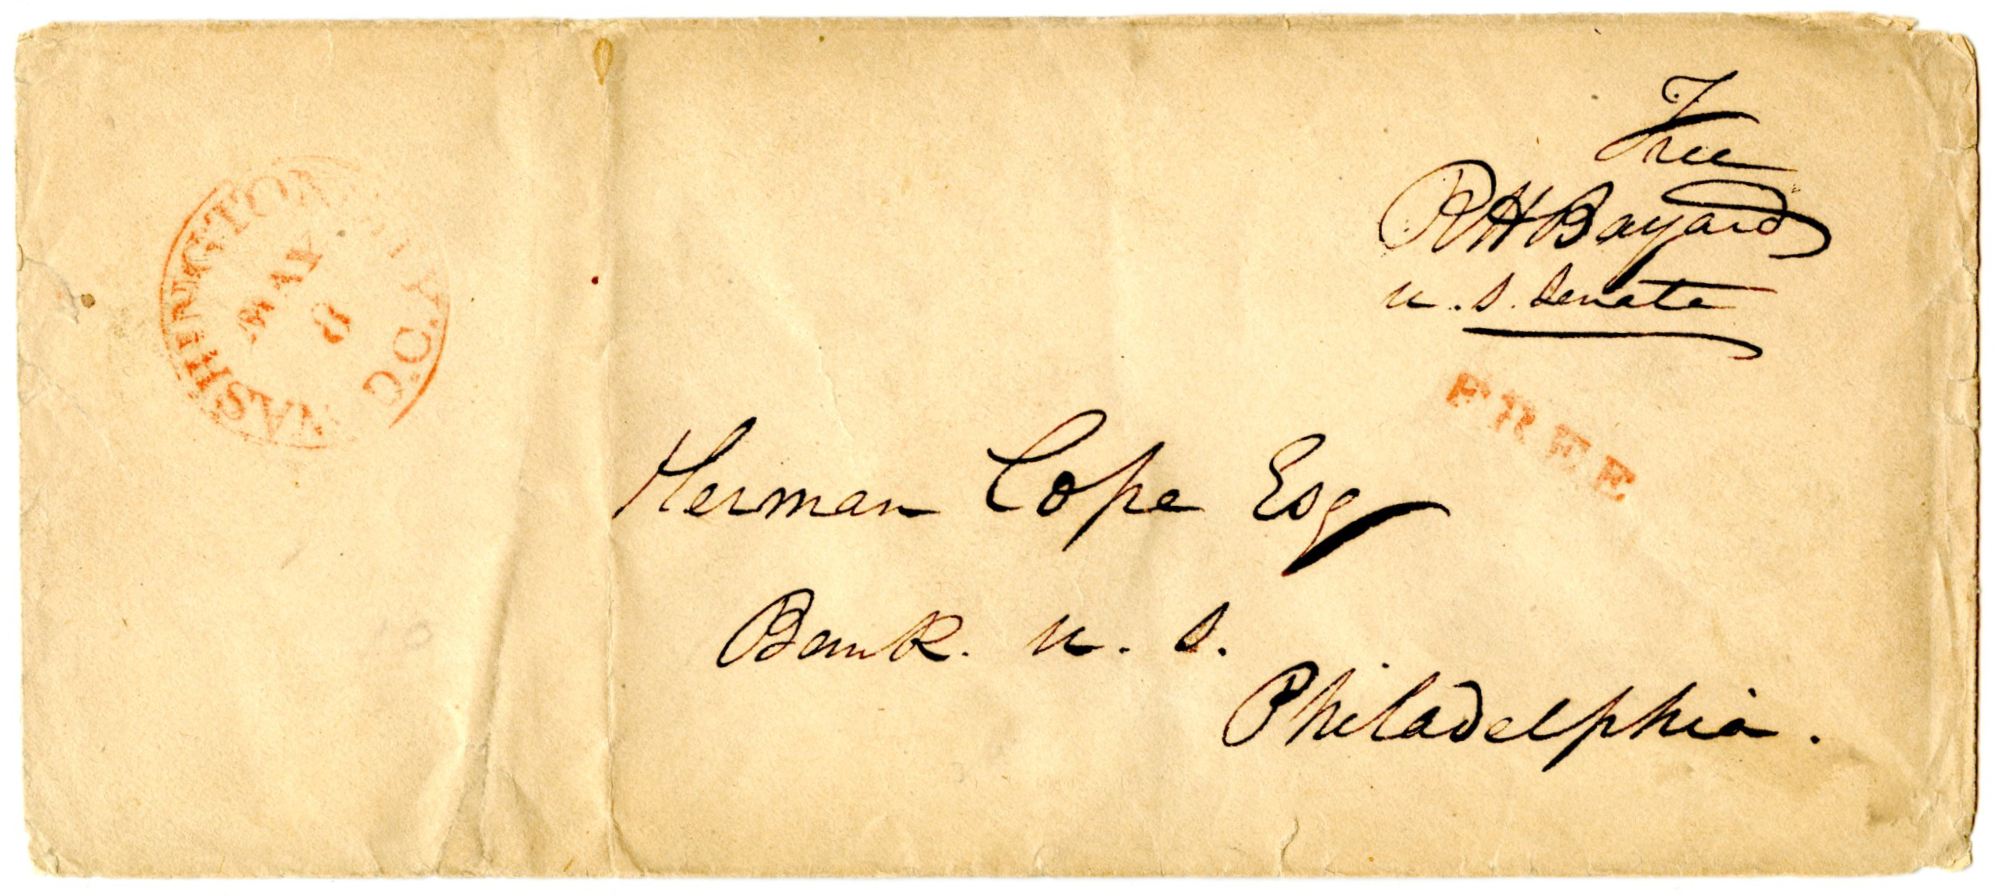 WASHINGTON CITY D.C.
MAY
8
Free
R H Bayard
U. S. Senate
FREE
Herman Cope Esq
Bank U. S.
Philadelphia.